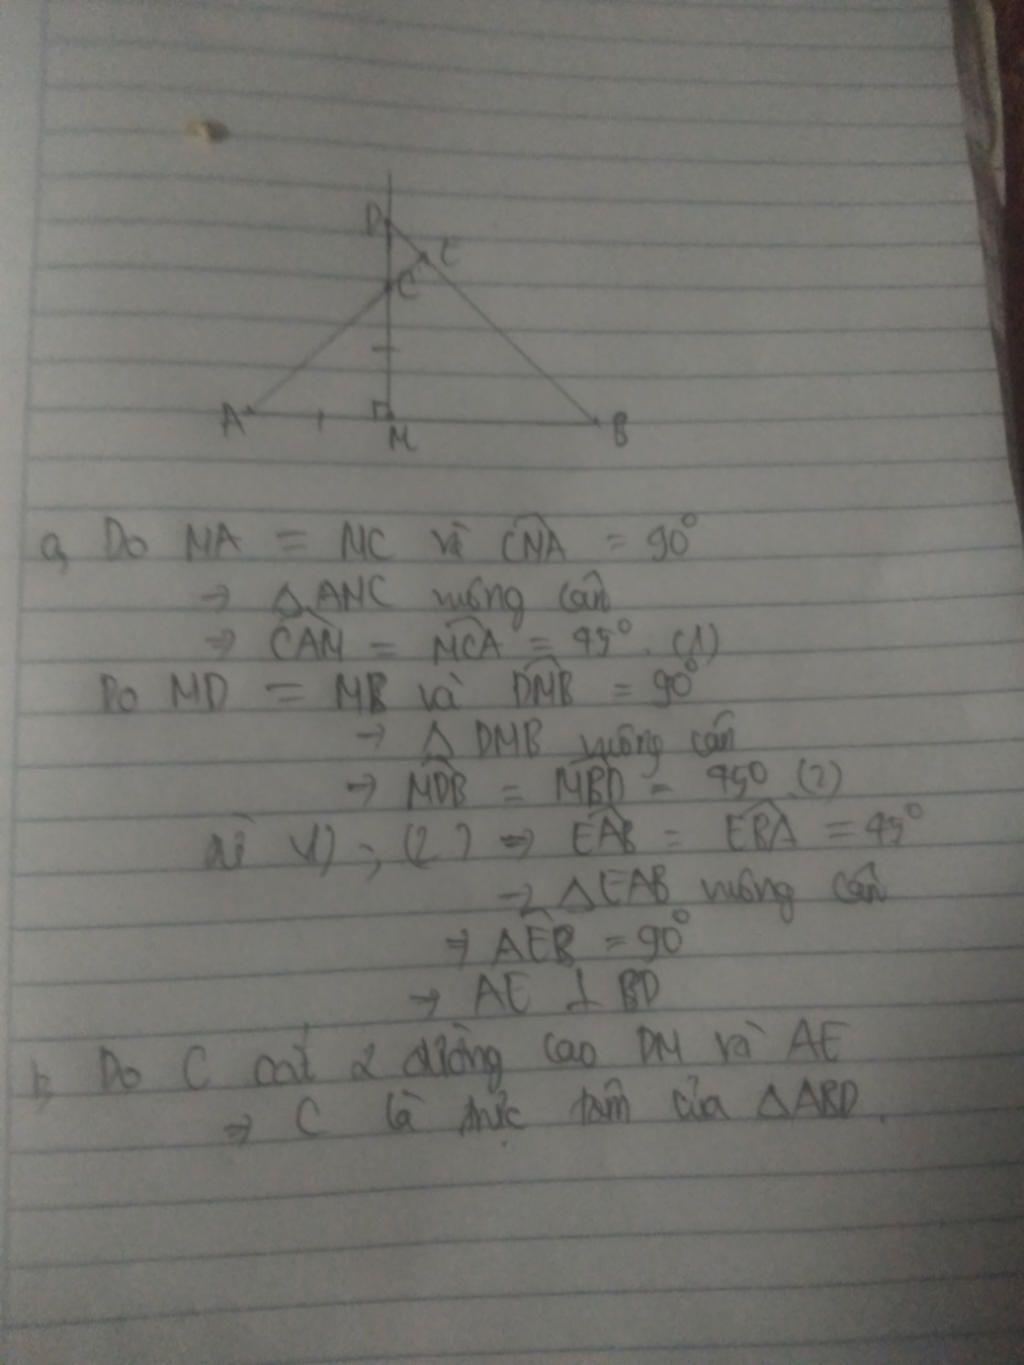 D
E
C
A
M
B
a, Do MA = MC và CMA = 90°
→ △AMC vuông cân
→ CAM = MCA = 45°. (1)
Do MD = MB và DMB = 90°
→ △ DMB vuông cân
→ MDB = MBD = 450 (2)
từ (1) ; (2) → EAB = EBA = 45°
→ △EAB vuông cân
→ AEB = 90°
→ AE ⊥ BD
b, Do C cắt 2 đường cao DM và AE
→ C là trực tâm của △ABD.